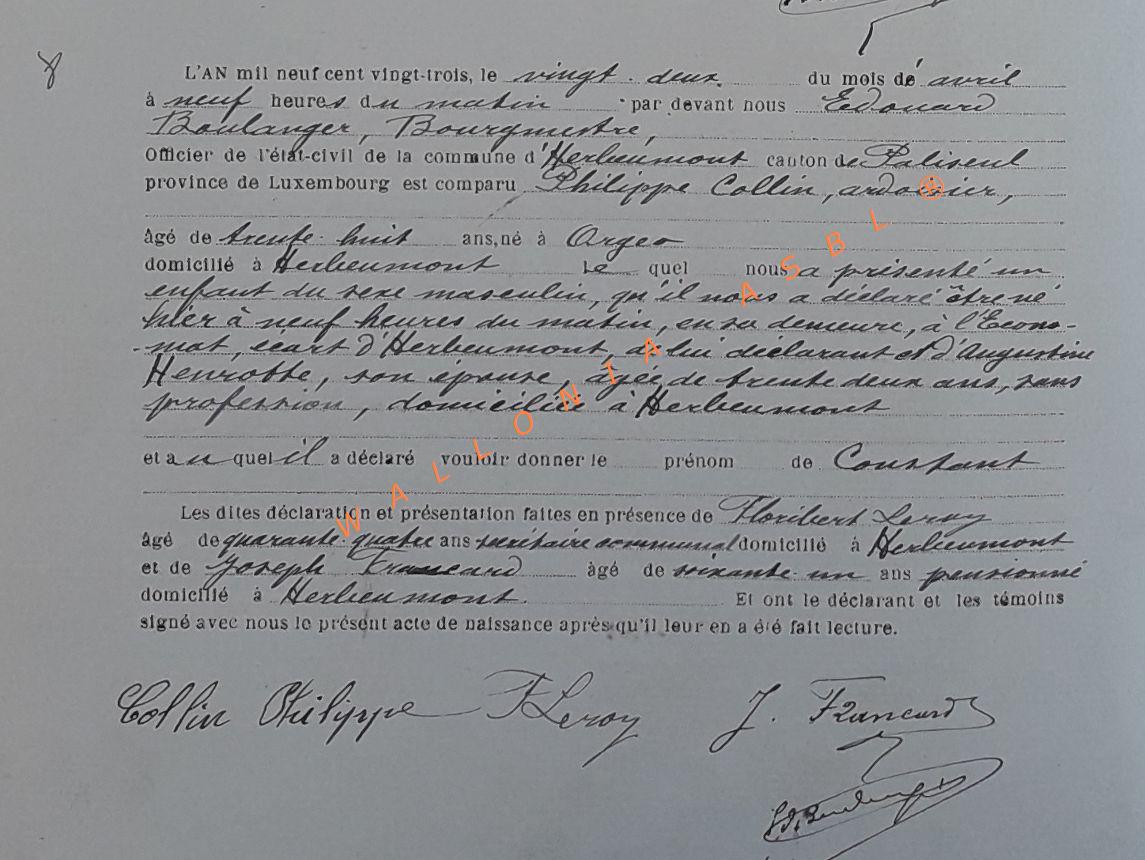 8
L'AN mil neuf cent vingt-trois, le vingt-deux du mois de avril
à neuf heures du matin par devant nous Edouard
Boulanger, Bourgmestre,
Officier de l'état-civil de la commune d'Herbeumont canton de Paliseul
province de Luxembourg est comparu Philippe Collin, ardoisier,
âgé de trente-huit ans, né à
domicilié à Herbeumont Le quel nous a présenté un
enfant du sexe masculin, qu'il nous a déclaré être né
hier à neuf heures du matin, en sa demeure, à l'Econo-
-mat, écart d'Herbeumont, de lui déclarant et d'Augustine
Henrotte, son épouse, âgée de trente deux ans, sans
profession, domiciliée à Herbeumont
et auquel il a déclaré vouloir donner le prénom de Constant
Les dites déclaration et présentation faites en présence de Floribert Leroy
âgé de quarante-quatre ans secrétaire communal domicilié à Herbeumont
et de Joseph Francard âgé de soixante-un ans pensionné
domicilié à Herbeumont. Et ont le déclarant et les témoins
signé avec nous le présent acte de naissance après qu'il leur en a été fait lecture.
Collin Philippe F Leroy J. Francard
WALLONIA ASBL ®